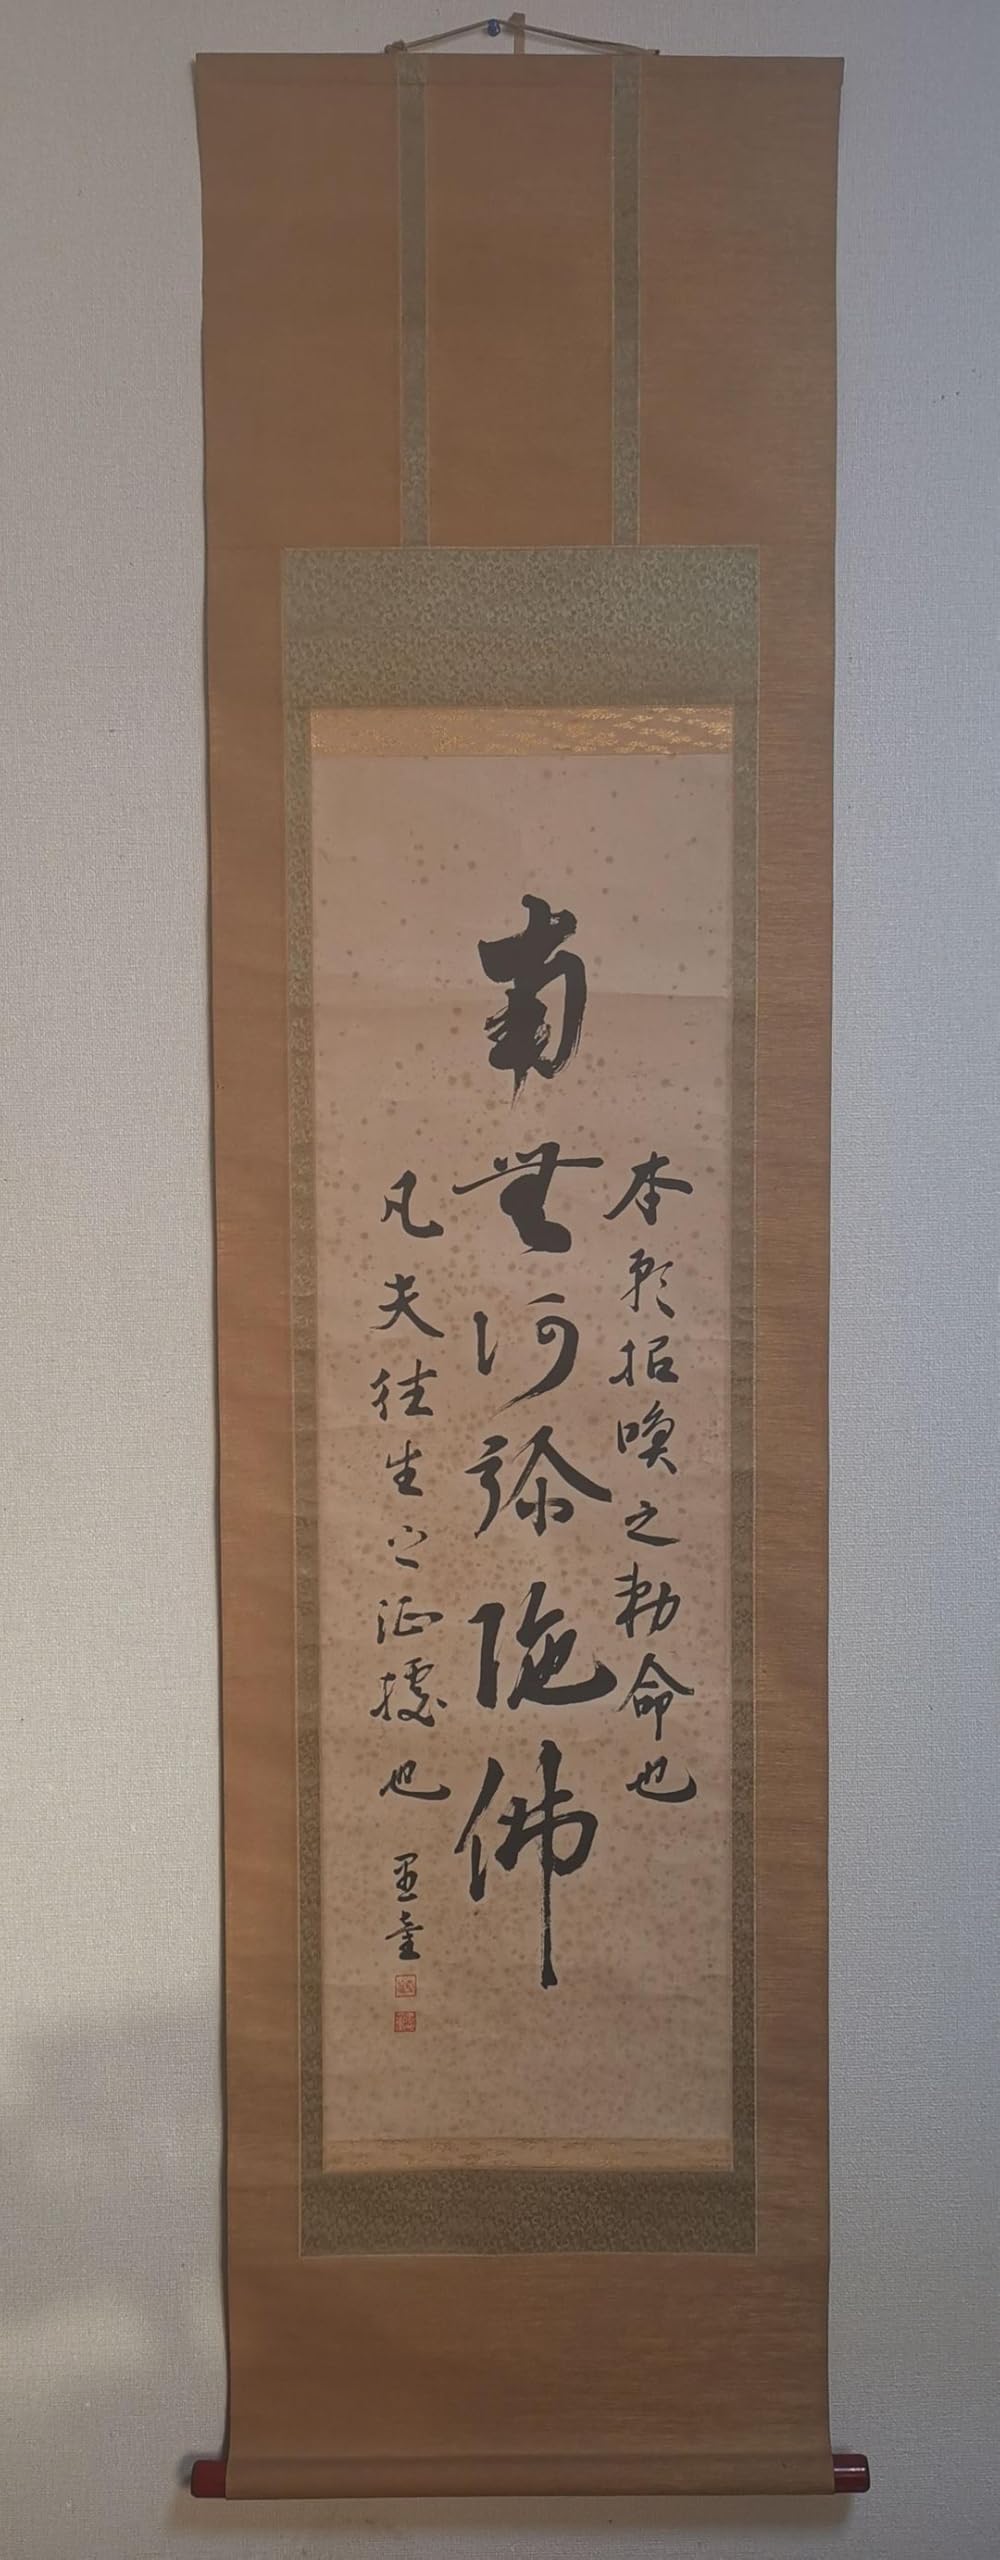 本願招喚之勅命也
南無阿弥陀佛
凡夫往生之証據也